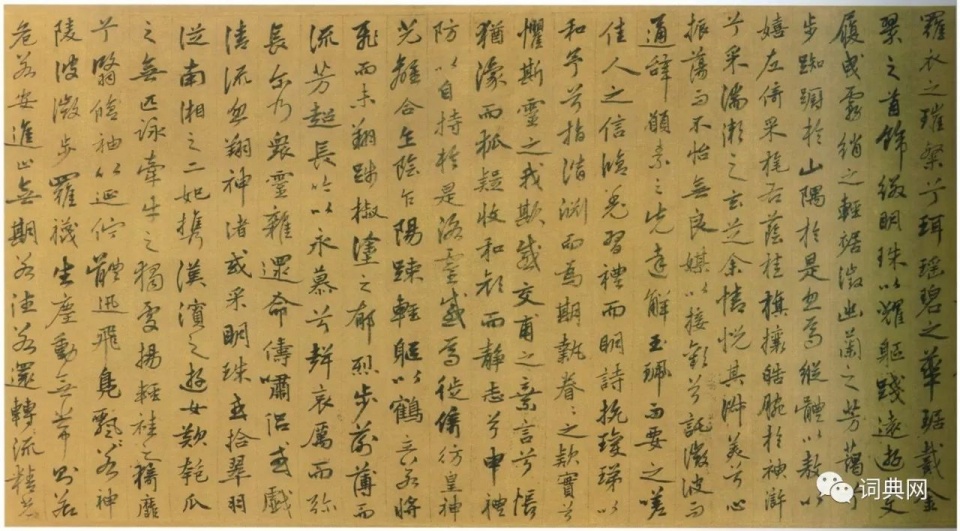 羅衣之璀粲兮珥瑤碧之華琚戴金
翠之首飾綴明珠以耀軀踐遠遊之文
履曳霧綃之輕裾微幽蘭之芳藹兮
步踟躕於山隅於是忽焉縱體以遨以
嬉左倚采旄右蔭桂旗攘皓腕於神滸
兮采湍瀨之玄芝余情悅其淑美兮心
振蕩而不怡無良媒以接歡兮託微波而
通辭願素之先達解玉珮而要之嗟
佳人之信脩羌習禮而明詩抗瓊珶以
和予兮指潛淵而為期執眷々之款實兮
懼斯靈之我欺感交甫之棄言兮悵
猶豫而狐疑收和顏而靜志兮申禮
防以自持於是洛靈感焉徙倚彷徨神
光離合乍陰乍陽竦輕軀以鶴立若將
飛而未翔踐椒塗之郁烈步蘅薄而
流芳超長吟以永慕兮聲哀厲而彌
長爾乃衆靈雜遝命儔嘯侶或戲
清流或翔神渚或采明珠或拾翠羽
從南湘之二妃攜漢濱之游女歎匏瓜
之無匹詠牽牛之獨處揚輕袿之猗靡
兮翳脩袖以延佇體迅飛鳧飄忽若神
陵波微步羅襪生塵動無常則若
危若安進止無期若往若還轉流精
词典网